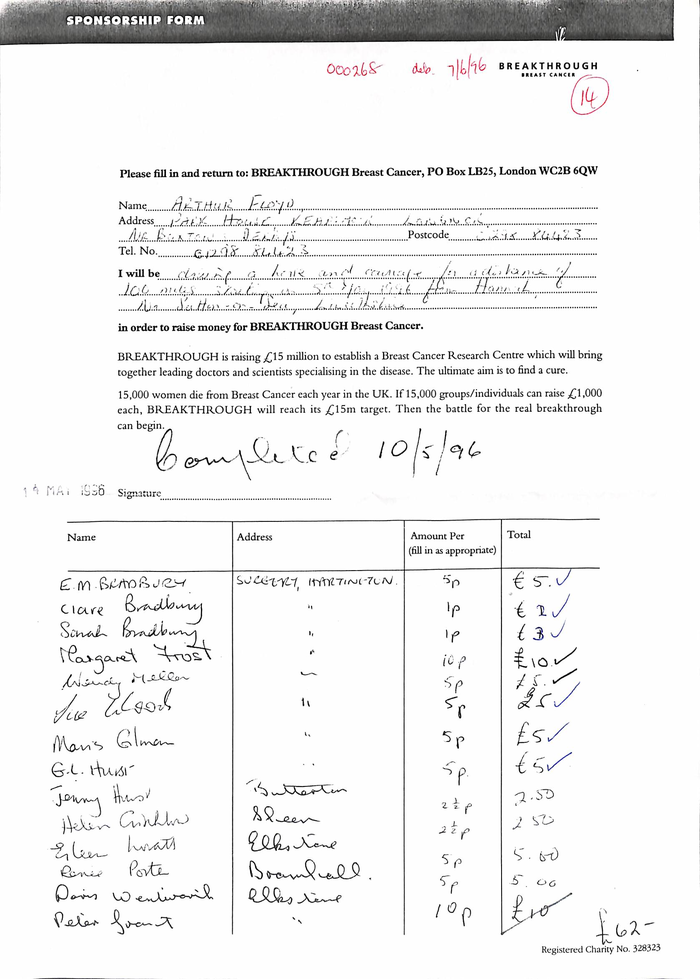 SPONSORSHIP FORM
000268 deb. 7/6/96 BREAKTHROUGH
BREAST CANCER
14
Please fill in and return to: BREAKTHROUGH Breast Cancer, PO Box LB25, London WC2B 6QW
Name ARTHUR FLOYD
Address PARK HOUSE
Postcode
Tel. No. 01298 84423
I will be driving a horse and carriage for a distance of
106 miles starting on 5th May 1996 from
Sutton-on-Sea, Lincolnshire
in order to raise money for BREAKTHROUGH Breast Cancer.
BREAKTHROUGH is raising £15 million to establish a Breast Cancer Research Centre which will bring
together leading doctors and scientists specialising in the disease. The ultimate aim is to find a cure.
15,000 women die from Breast Cancer each year in the UK. If 15,000 groups/individuals can raise £1,000
each, BREAKTHROUGH will reach its £15m target. Then the battle for the real breakthrough
can begin.
Completed 10/5/96
14 MAY 1996 Signature
Name Address Amount Per Total
(fill in as appropriate)
E.M. BRADBURY HARTINGTON. 5p £5.✓
Clare Bradbury " 1p £1✓
Sarah Bradbury " 1p £3✓
Margaret Frost " 10p £10✓
Wendy Meller 5p £5.✓
Sue Wood " 5p £5✓
Mavis Gilman " 5p £5✓
G.L. HURST " 5p. £5✓
Jenny Hurst Butterton 2½p 2.50
Helen Sheen 2½p 2 50
Eileen Elkstone 5p 5.00
Renee Porte Bramhall. 5p 5.00
Doris Wentworth Elkstone
Peter Grant " 10p £10
£62-
Registered Charity No. 328323